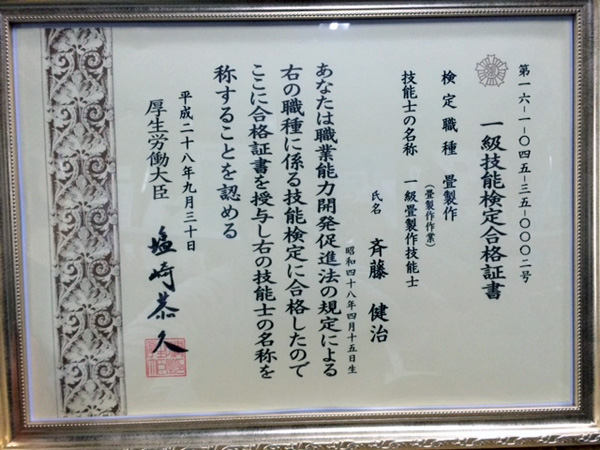 第一六-一-〇四五-三五-〇〇〇二号
一級技能検定合格証書
検定職種 畳製作
(畳製作作業)
技能士の名称 一級畳製作技能士
氏名 斉藤 健治
昭和四十八年四月十五日生
あなたは職業能力開発促進法の規定による
右の職種に係る技能検定に合格したので
ここに合格証書を授与し右の技能士の名称を
称することを認める
平成二十八年九月三十日
厚生労働大臣 塩崎恭久